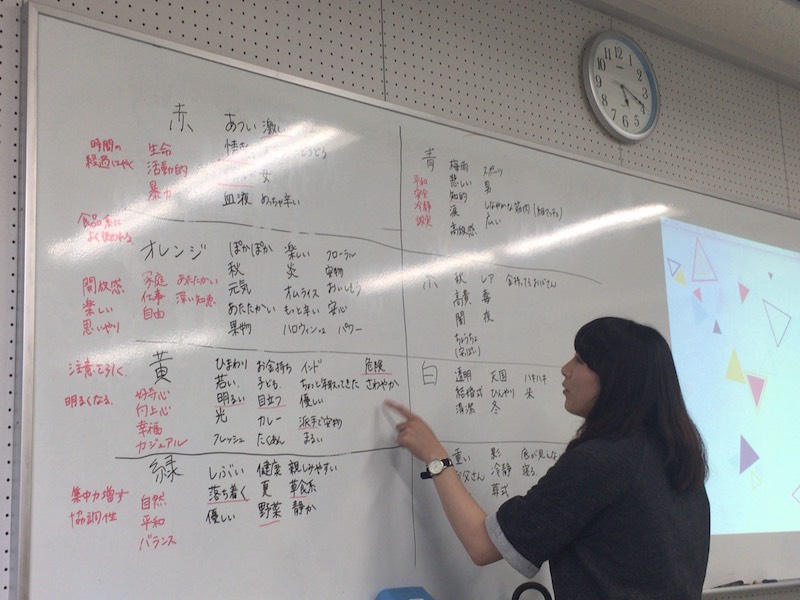 赤
あつい 激しい
時間の
経過にやく
生命
活動的
暴力
女
血液 めっちゃ辛い
食品系に
よく使われる
オレンジ
ぽかぽか 楽しい フローラル
秋 炎 安物
元気 オムライス おいしそう
あたたかい もっと辛い 安心
果物 ハロウィンっぽ パワー
開放感 家庭 あたたかい
楽しい 仕事 深い知恵
思いやり 自由
黄
注意を引く
明るくなる
好奇心
向上心
幸福
カジュアル
ひまわり お金持ち インド 危険
若い 子ども ちょっと冷えてきた さわやか
明るい 目立つ 優しい
光 カレー 派手で安物
フレッシュ たくあん まるい
緑
しぶい 健康 親しみやすい
落ち着く 夏 草食系
優しい 野菜 静か
集中力増す 自然
協調性 平和
バランス
青
梅雨 スポーツ
悲しい 男
知的
涙 しなやかな筋肉
開放感 広い
平和
安全
冷静
誠実
秋 レア 金持ってるおばさん
高貴 毒
闇 夜
ちょうちょ
白
透明 天国 ハキハキ
結婚式 ひんやり 米
清潔 冬
重い 影
お父さん 冷静 寝る
葬式